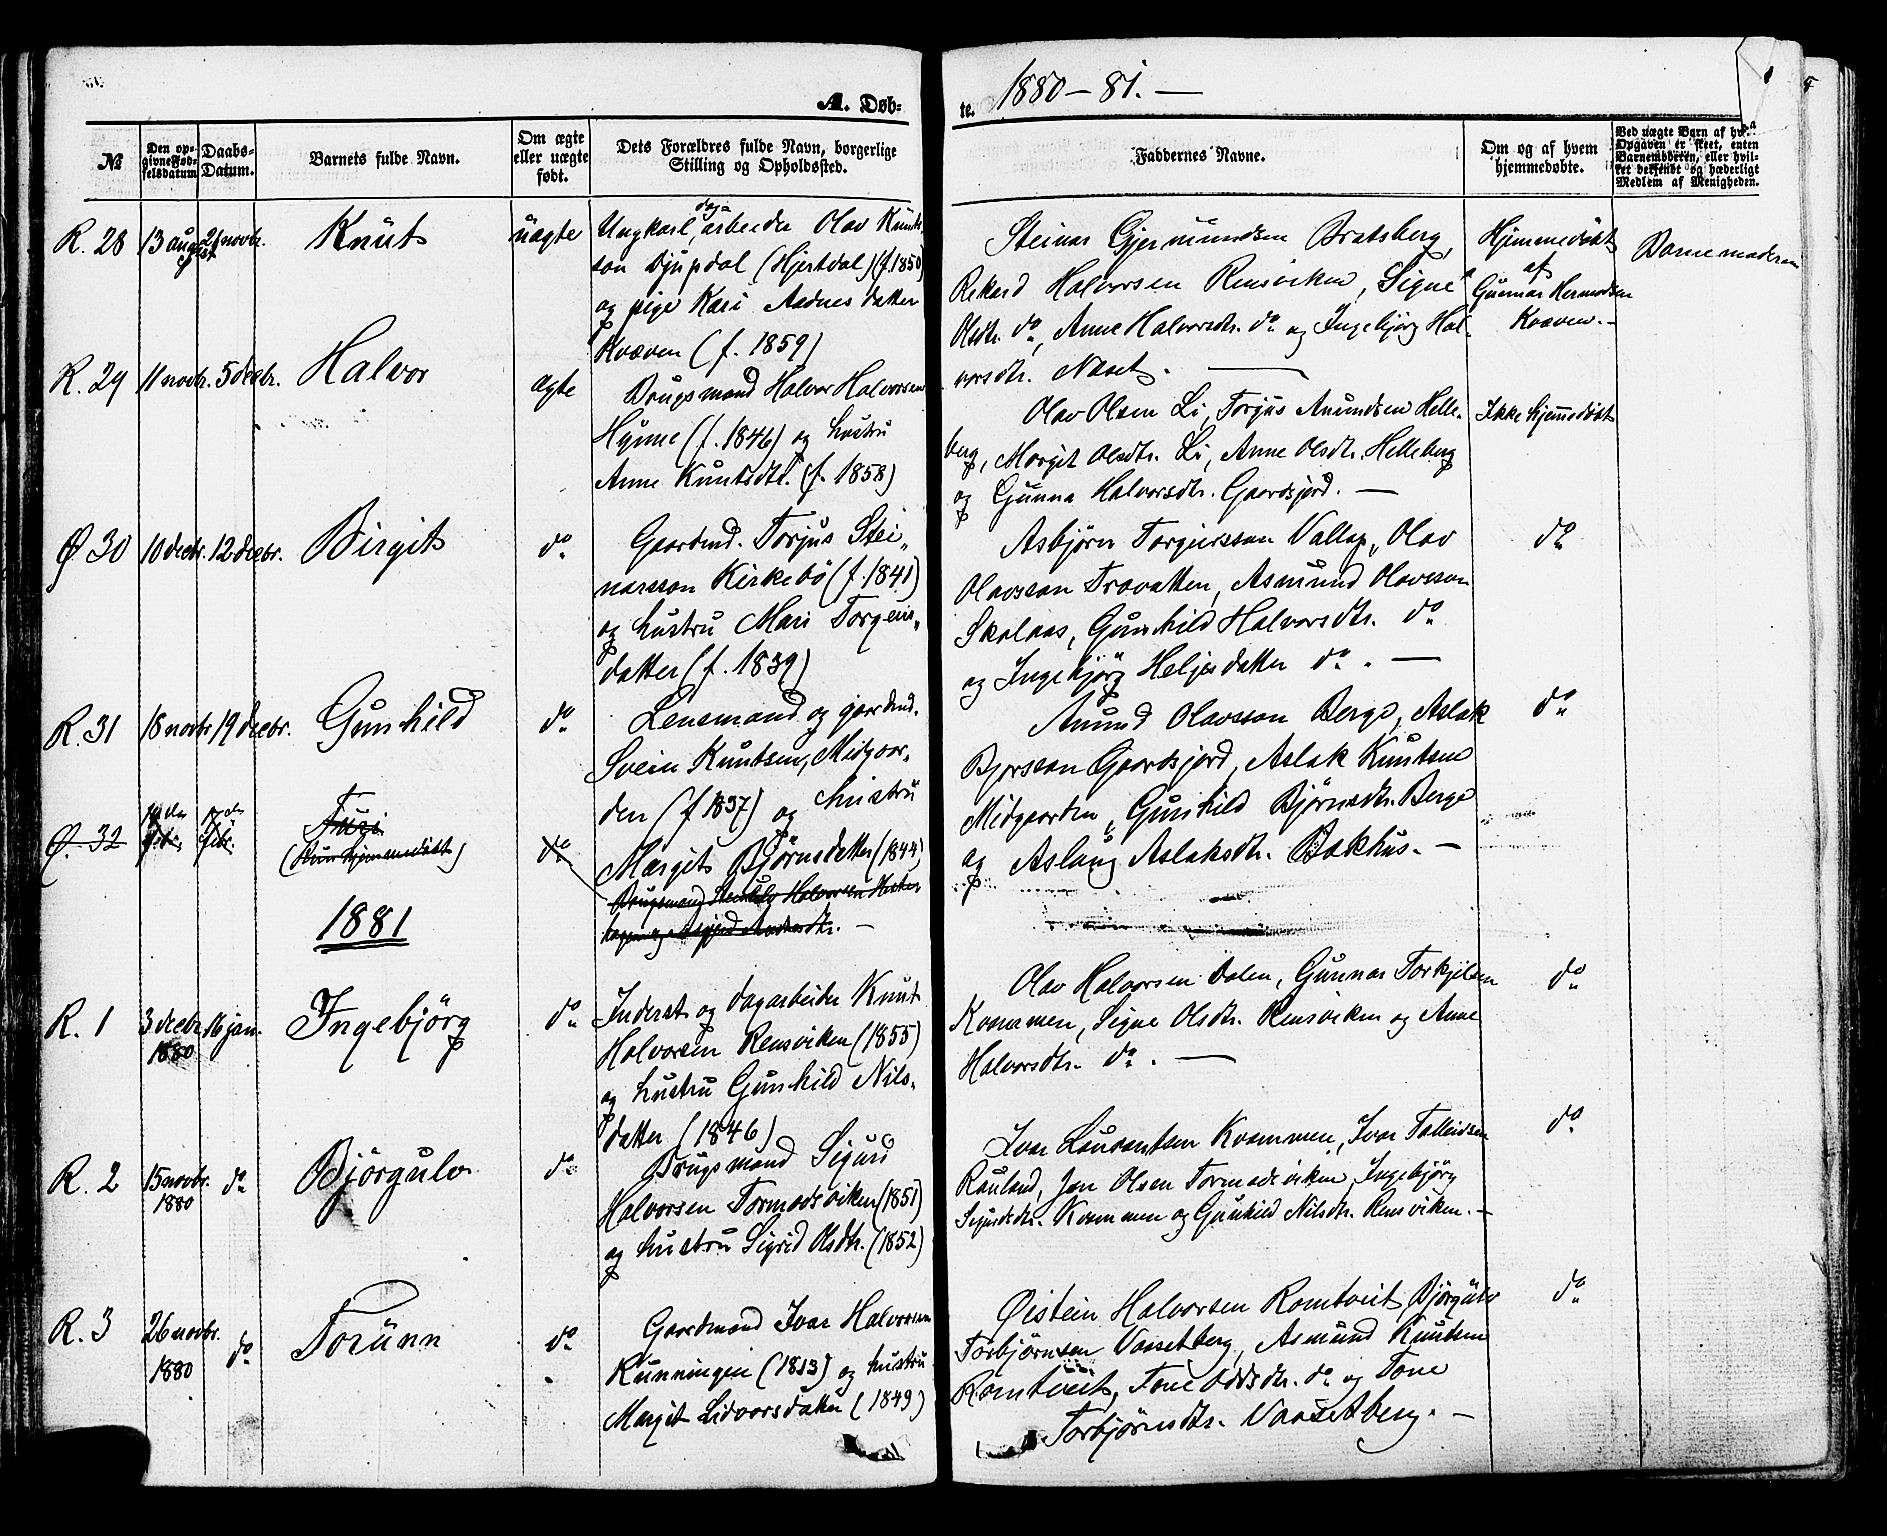 A. Døb=
te. 1880 – 81. —
№
Den op-
givne Fød-
selsdatum
Daabs-
Datum.
Barnets fulde Navn.
Om ægte
eller uægte
født.
Dets Forældres fulde Navn, borgerlige
Stilling og Opholdssted.
Faddernes Navne.
Om og af hvem
hjemmedøbte.
Ved uægte Barn af hv
Opgaven er skeet, enten
Barnemoderen, eller hvil-
ket bekjendt og hæderligt
Medlem af Menigheden.
R. 28
13 august
21 novbr.
Knut
uægte
Ungkarl, dagarbeider Olav Knut-
son Djupdal (Hjertdal) (f. 1850)
og pige Kari Aadnesdatter
Kvæven (f. 1859)
Steinar Gjermundsen Bratsberg,
Rekard Halvorsen Rensviken, Signe
Olsdtr. do, Anne Halvorsdtr. do og Ingebjørg Hal-
vorsdtr. Næset. —
Hjemmedøbt
af
Gunnar Hermodsen
Kvæven. -
Barnemoderen
R. 29
11 novbr.
5 decbr.
Halvor
ægte
Brugsmand Halvor Halvorsen
Hynne (f. 1846) og hustru
Anne Knutsdtr. (f. 1858)
Olav Olsen Li, Torjus Anundsen Helle-
berg, Margit Olsdtr. Li, Anne Olsdtr. Helleberg
og Gunna Halvorsdtr. Gaardsjord. —
Ikke hjemmedøbt
Ø 30
10 decbr.
12 decbr.
Birgit
do
Gaardmd. Torjus Stei-
narsson Kirkebø (f. 1841)
og hustru Mari Torgeirs-
datter (f. 1839)
Asbjørn Torgeirsson Vallap, Olav
Olavsson Trovatten, Asmund Olavsson
Skalaas, Gunhild Halvorsdtr. do
og Ingebjørg Heljesdatter do. —
do
R. 31
18 novbr.
19 decbr.
Gunhild
do
Lensmand og gaardmd.
Svein Knutsen, Midgaar-
den (f 1837) og hustru
Margit Björnsdatter (1844)
Anund Olavsson Berge, Aslak
Bjørsson Gaardsjord, Aslak Knutsen
Midgaarden, Gunhild Bjørnsdtr. Berge
og Aslaug Aslaksdtr. Bakhus. —
do
Ø. 32
(hun hjemmedøbt)
do
Brugsmand Halvorsen
1881
R. 1
3 decbr.
1880
16 jan.
Ingebjörg
do
Inderst og dagarbeider Knut
Halvorsen Rensviken (1855)
og hustru Gunhild Nils-
datter (1846)
Olav Halvorsen Dalen, Gunnar Torkjilsen
Kvammen, Signe Olsdtr. Rensviken og Anne
Halvorsdtr. do. —
do
R. 2
15 novbr.
1880
do
Björgulv
do
Brugsmand Sigurd
Halvorsen Tormodsviken (1851)
og hustru Sigrid Olsdtr. (1852)
Ivar Lauvantsen Kvammen, Ivar Talleivsen
Rauland, Jon Olsen Tormodsviken, Ingebjørg
Sigurdsdtr. Kvammen og Gunhild Nilsdtr. Rensviken. —
do
R. 3
26 novbr.
1880
do
Torunn
do
Gaardmand Ivar Halvorsen
Kunningen (1813) og hustru
Margit Lidvorsdatter (1849)
Øistein Halvorsen Romtveit, Bjørgulv
Torbjørnsen Vaasetberg, Asmund Knutsen
Romtveit, Tone Oddsdtr. do og Tone
Torbjørnsdtr. Vaasetberg. —
do